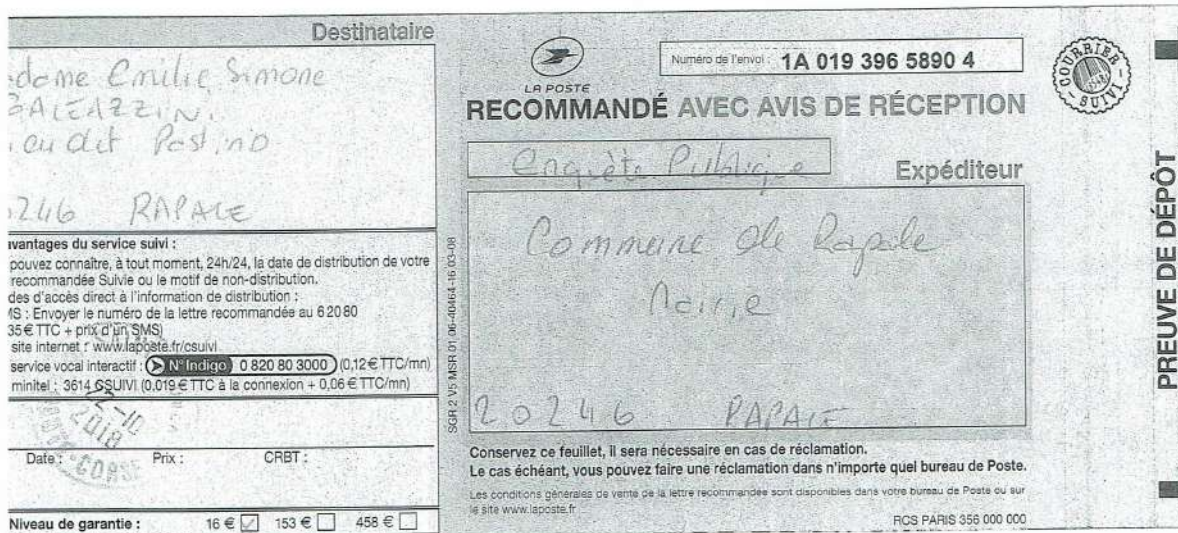 Destinataire
dame Emilie Simone
GALEAZZINI
eudit Postino
0246 RAPALE
vantages du service suivi :
pouvez connaître, à tout moment, 24h/24, la date de distribution de votre
recommandée Suivie ou le motif de non-distribution.
des d'accès direct à l'information de distribution :
MS : Envoyer le numéro de la lettre recommandée au 6 20 80
35 € TTC + prix d'un SMS)
site internet : www.laposte.fr/csuivi
service vocal interactif : N° Indigo 0 820 80 3000 (0,12 € TTC/mn)
minitel : 3614 CSUIVI (0,019 € TTC à la connexion + 0,06 € TTC/mn)
2-10
2018
CORSE
Date : Prix : CRBT :
Niveau de garantie : 16 € 153 € 458 €
SGR 2 V5 MSR 01 06-40464-16 03-08
LA POSTE
Numéro de l'envoi : 1A 019 396 5890 4
RECOMMANDÉ AVEC AVIS DE RÉCEPTION
Enquête Publique
Expéditeur
Commune de Rapale
Mairie
20246 RAPALE
Conservez ce feuillet, il sera nécessaire en cas de réclamation.
Le cas échéant, vous pouvez faire une réclamation dans n'importe quel bureau de Poste.
Les conditions générales de vente de la lettre recommandée sont disponibles dans votre bureau de Poste ou sur
le site www.laposte.fr
RCS PARIS 356 000 000
COURRIER
SUIVI
PREUVE DE DÉPÔT